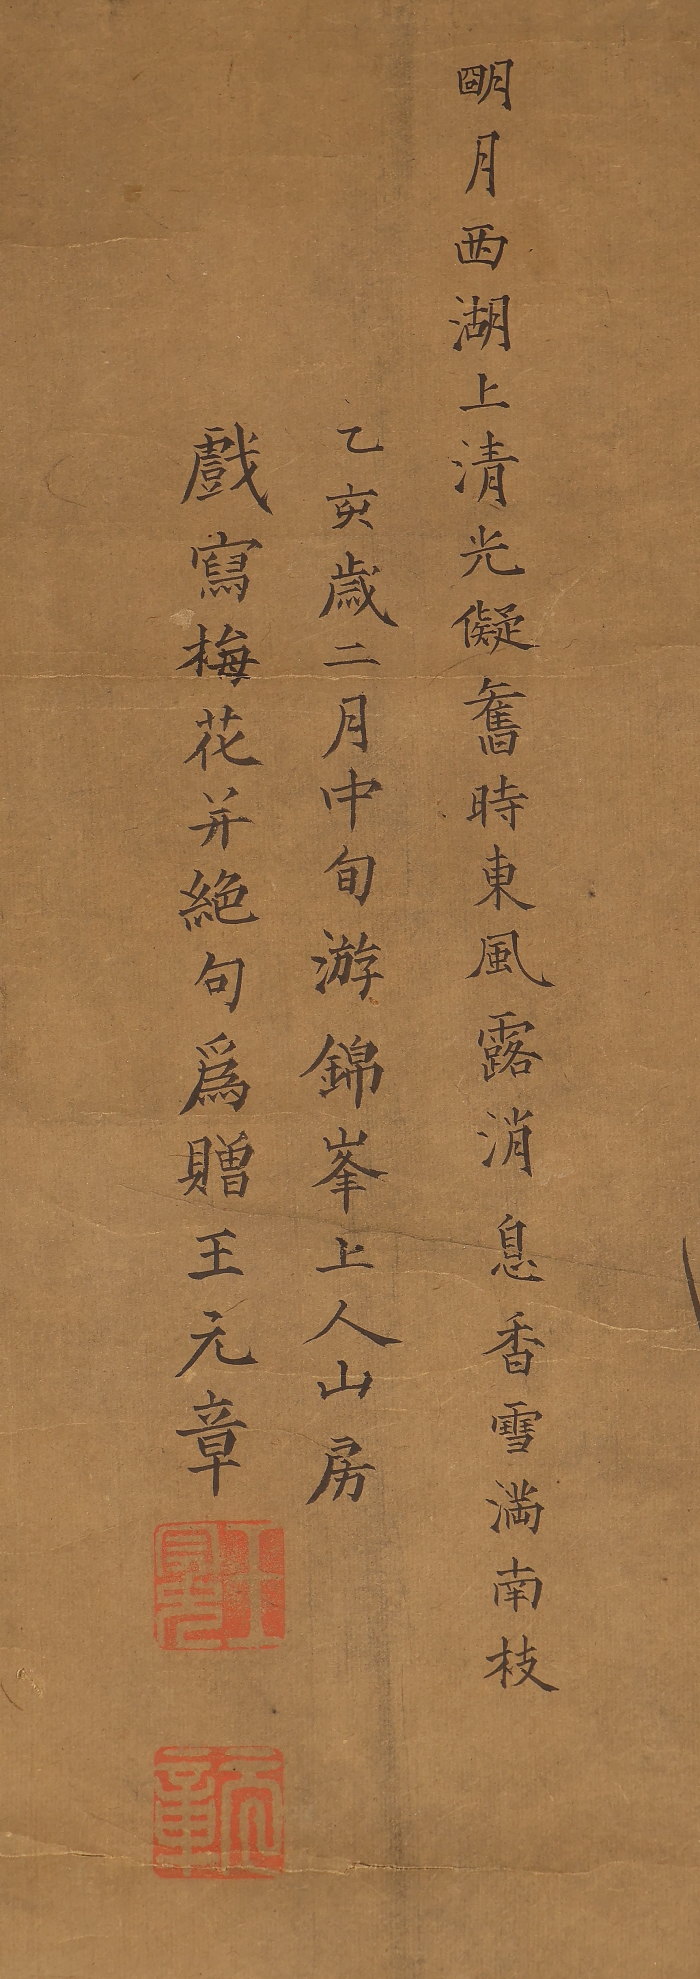 朙月西湖上清光儗舊時東風露消息香雪滿南枝
乙亥歲二月中旬游錦峯上人山房
戲寫梅花并絕句爲贈王元章
王冕
元章